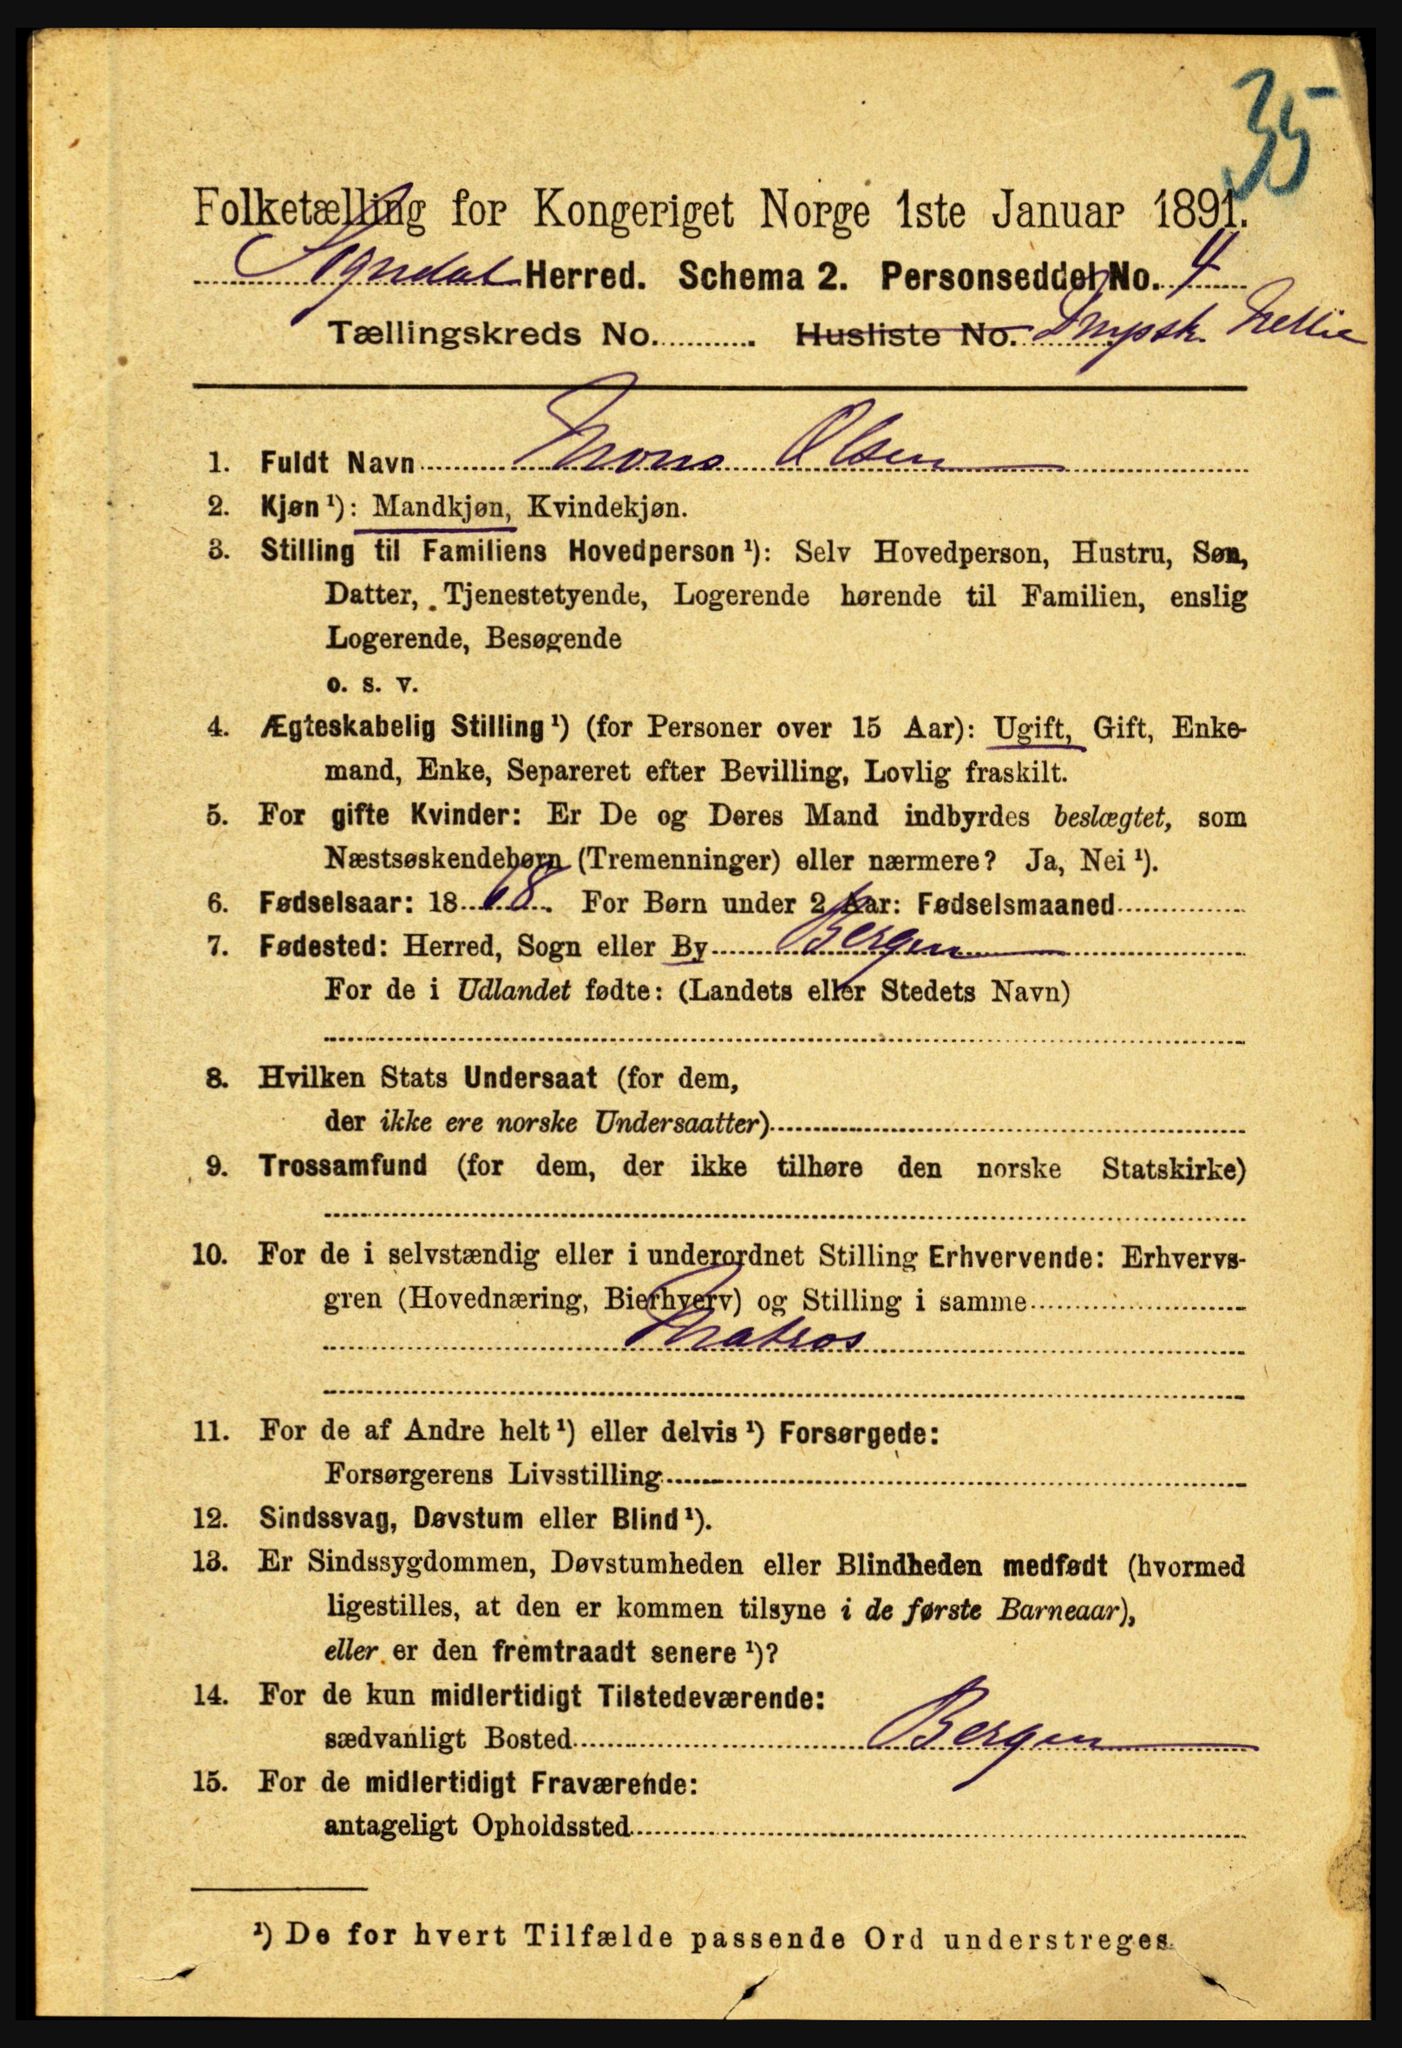 35
Folketælling for Kongeriget Norge 1ste Januar 1891.
Sogndal Herred. Schema 2. Personseddel No. 4
Tællingskreds No. Husliste No. Dmpsk. Nellie
1. Fuldt Navn Mons Olsen
2. Kjøn ¹): Mandkjøn, Kvindekjøn.
3. Stilling til Familiens Hovedperson ¹): Selv Hovedperson, Hustru, Søn,
Datter, Tjenestetyende, Logerende hørende til Familien, enslig
Logerende, Besøgende
o. s. v.
4. Ægteskabelig Stilling ¹) (for Personer over 15 Aar): Ugift, Gift, Enke-
mand, Enke, Separeret efter Bevilling, Lovlig fraskilt.
5. For gifte Kvinder: Er De og Deres Mand indbyrdes beslægtet, som
Næstsøskendebørn (Tremenninger) eller nærmere? Ja, Nei ¹).
6. Fødselsaar: 1868. For Børn under 2 Aar: Fødselsmaaned
7. Fødested: Herred, Sogn eller By Bergen
For de i Udlandet fødte: (Landets eller Stedets Navn)
8. Hvilken Stats Undersaat (for dem,
der ikke ere norske Undersaatter)
9. Trossamfund (for dem, der ikke tilhøre den norske Statskirke)
10. For de i selvstændig eller i underordnet Stilling Erhvervende: Erhvervs-
gren (Hovednæring, Bierhverv) og Stilling i samme
Matros
11. For de af Andre helt ¹) eller delvis ¹) Forsørgede:
Forsørgerens Livsstilling
12. Sindssvag, Døvstum eller Blind ¹).
13. Er Sindssygdommen, Døvstumheden eller Blindheden medfødt (hvormed
ligestilles, at den er kommen tilsyne i de første Barneaar),
eller er den fremtraadt senere ¹)?
14. For de kun midlertidigt Tilstedeværende:
sædvanligt Bosted Bergen
15. For de midlertidigt Fraværende:
antageligt Opholdssted
¹) De for hvert Tilfælde passende Ord understreges.